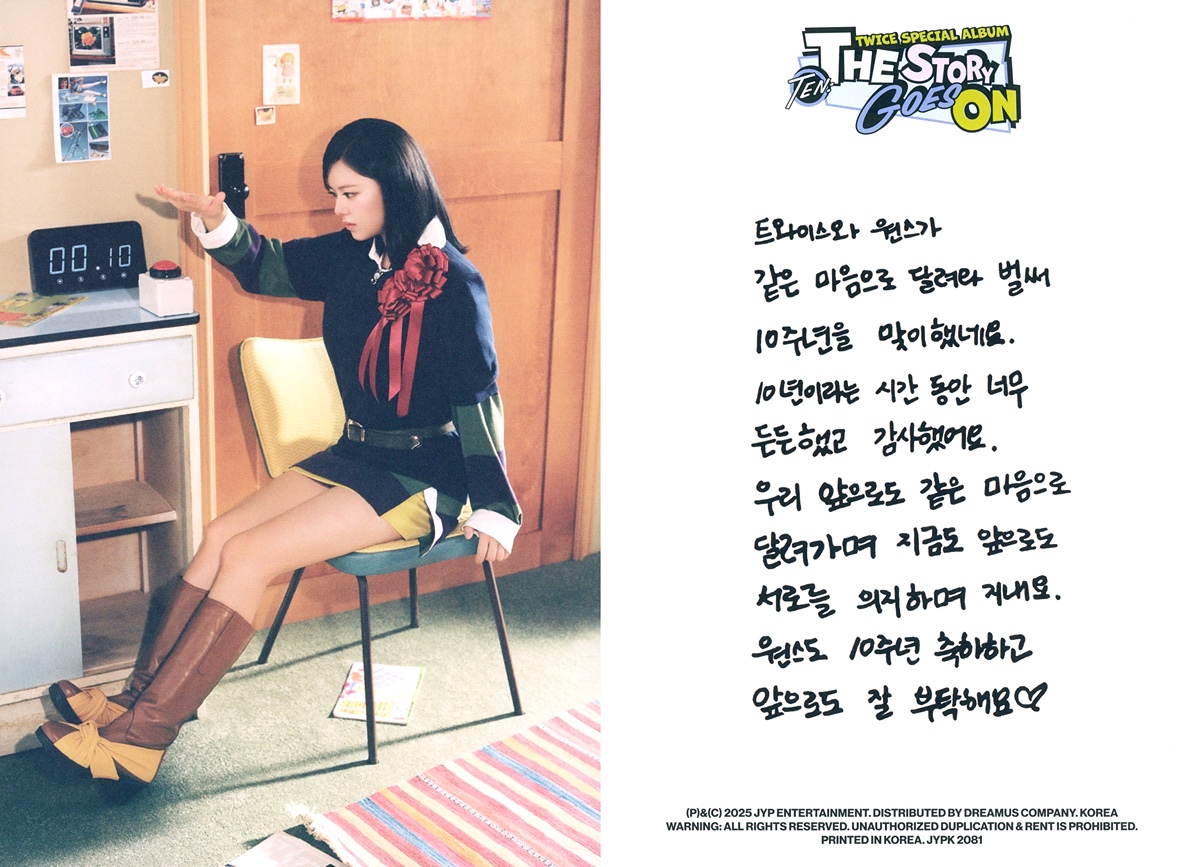 00:10
TWICE SPECIAL ALBUM
TEN:
THE STORY
GOES ON
트와이스와 원스가
같은 마음으로 달려와 벌써
10주년을 맞이했네요.
10년이라는 시간 동안 너무
든든했고 감사했어요.
우리 앞으로도 같은 마음으로
달려가며 지금도 앞으로도
서로를 의지하며 지내요.
원스도 10주년 축하하고
앞으로도 잘 부탁해요♡
(P)&(C) 2025 JYP ENTERTAINMENT. DISTRIBUTED BY DREAMUS COMPANY. KOREA
WARNING: ALL RIGHTS RESERVED. UNAUTHORIZED DUPLICATION & RENT IS PROHIBITED.
PRINTED IN KOREA. JYPK 2081